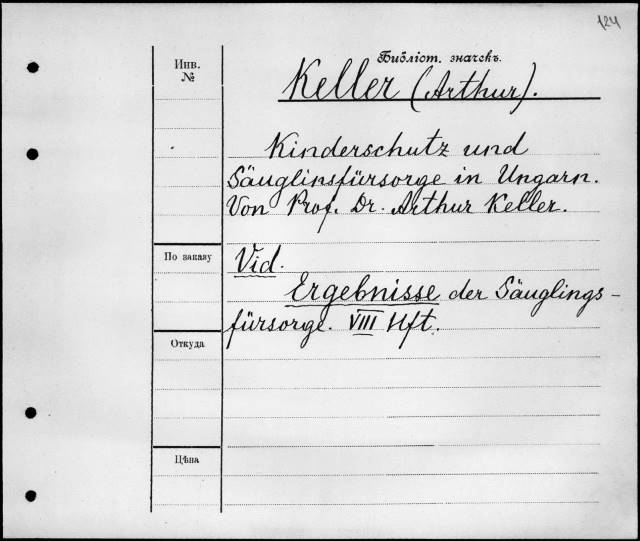 124
Инв.
№
Библіот. значекъ.
Keller (Arthur).
Kinderschutz und
Säuglinsfürsorge in Ungarn.
Von Prof. Dr. Arthur Keller.
По заказу
Vid.
Ergebnisse der Säuglings-
fürsorge. VIII Hft.
Откуда
Цѣна